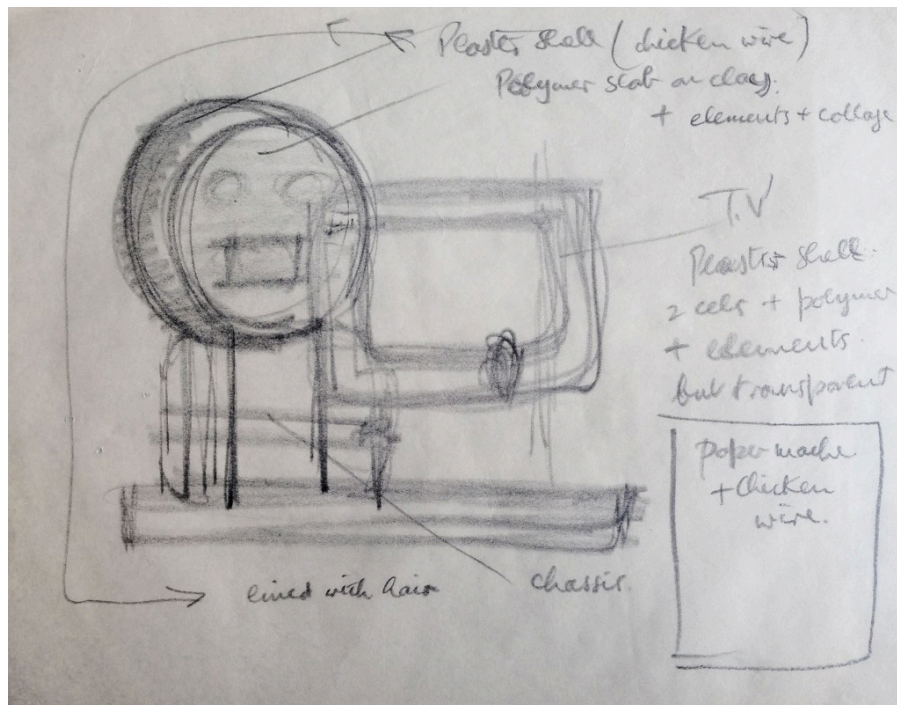 Plaster shell (chicken wire)
Polymer slab on clay.
+ elements + collage
T.V
Plaster shell.
2 cels + polymer
+ elements.
but transparent
paper mache
+ chicken
wire.
lined with hair
chassis.